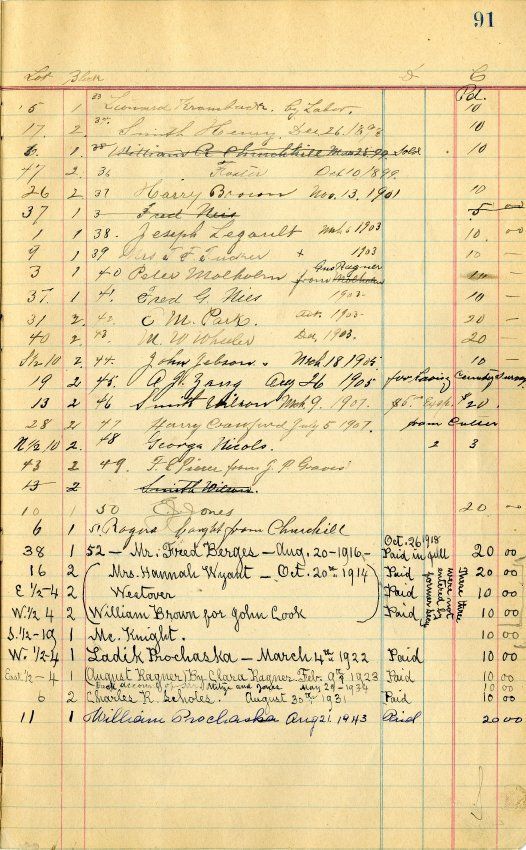 91
Lot Block D C
Pd.
5 1 33 Leonard by Labor. 10
17 2 Smith Henry, Dec 26, 1898 10
6 1 William R Churchill Mar 25, 99 Sold 10
47 2 36 Foster Oct 10/1899
26 2 37 Harry Brown Nov. 13, 1901 10
37 1 3 Fred Nies 5
1 1 38. Joseph Legault 1903 10 00
9 1 39 Mrs F. F. Tucker 1903 10 -
3 1 40 Peter Malholm Gus Ragner from 10
37. 1 41 Fred G. Nies 1903 10 -
31 2 42 C M. Park. Oct. 1903 20 -
40 2 43 M W Wheeler Dec, 1903. 20 -
S 1/2 10 2 44. John Jobson. Mch 18 1905 10 -
19 2 45. A. W. Zang Aug 26 1905 for County
13 2 46 Smith Wilson Mch 9, 1907. 20.
28 2 47 Harry Crawford July 5 1907. from
N 1/2 10 2 48 George Nicols. 2 3
43 2 49. from J. P. Graves
13 2 Smith Wilson.
10 1 50 Jones 20 00
6 1 51 Rogers bought from Churchill
Oct. 26 1918
38 1 52 - Mr. Fred Berges - Aug. 20-1916 - Paid in full 20 00
16 2 Mrs. Hannah Wyant - Oct. 20th 1914 Paid 20 00
E 1/2-4 2 Westover Paid 10 00
W. 1/2 4 2 William Brown for John Cook Paid 10 00
These three were not entered by former secy
S. 1/2-19 1 Mc. Knight. 10 00
W. 1/2-4 1 Ladik Prochaska - March 4th 1922 Paid 10 00
East 1/2-4 1 August Ragner) By Clara Ragner Feb. 9th 1923 Paid 10 00
Mitze and May 29-1934 10 00
6 2 Charles R. Scholes. August 30th 1931 Paid 10 00
11 1 William Prochaska Aug 21. 1943 Paid 20 00